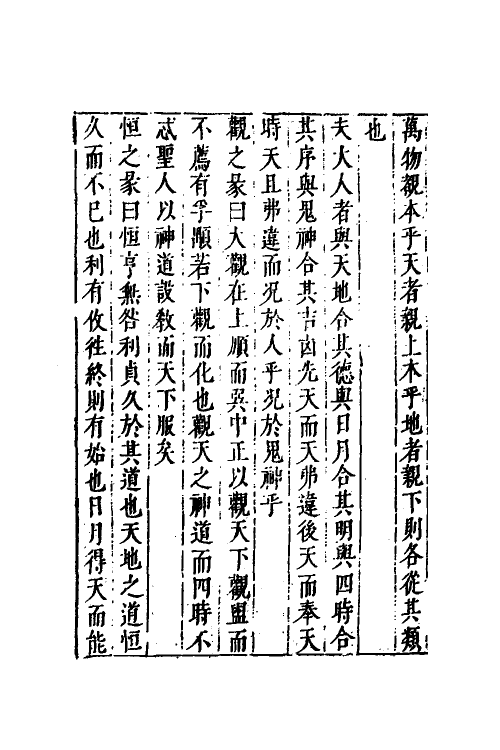 萬物覩本乎天者親上本乎地者親下則各從其類
也
夫大人者與天地合其德與日月合其明與四時合
其序與鬼神合其吉凶先天而天弗違後天而奉天
時天且弗違而況於人乎況於鬼神乎
觀之彖曰大觀在上順而巽中正以觀天下觀盥而
不薦有孚顒若下觀而化也觀天之神道而四時不
忒聖人以神道設教而天下服矣
恒之彖曰恒亨無咎利貞久於其道也天地之道恒
久而不已也利有攸往終則有始也日月得天而能